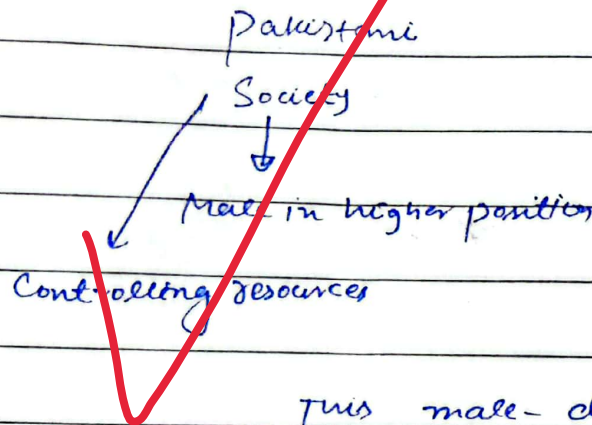 Pakistani
Society
Male in higher position
Controlling resources
This male-